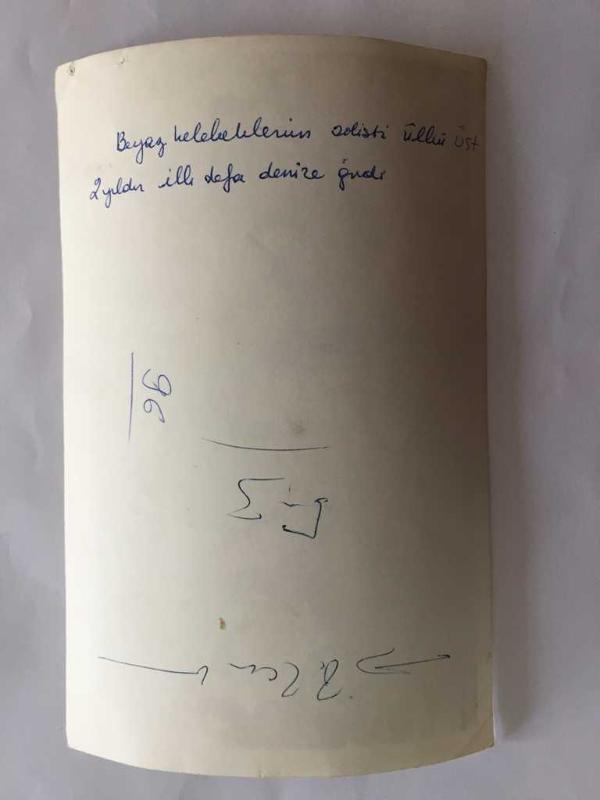 Beyaz kelebeklerin solisti ülkü üst
2 yıldır ilk defa denize girdi
96